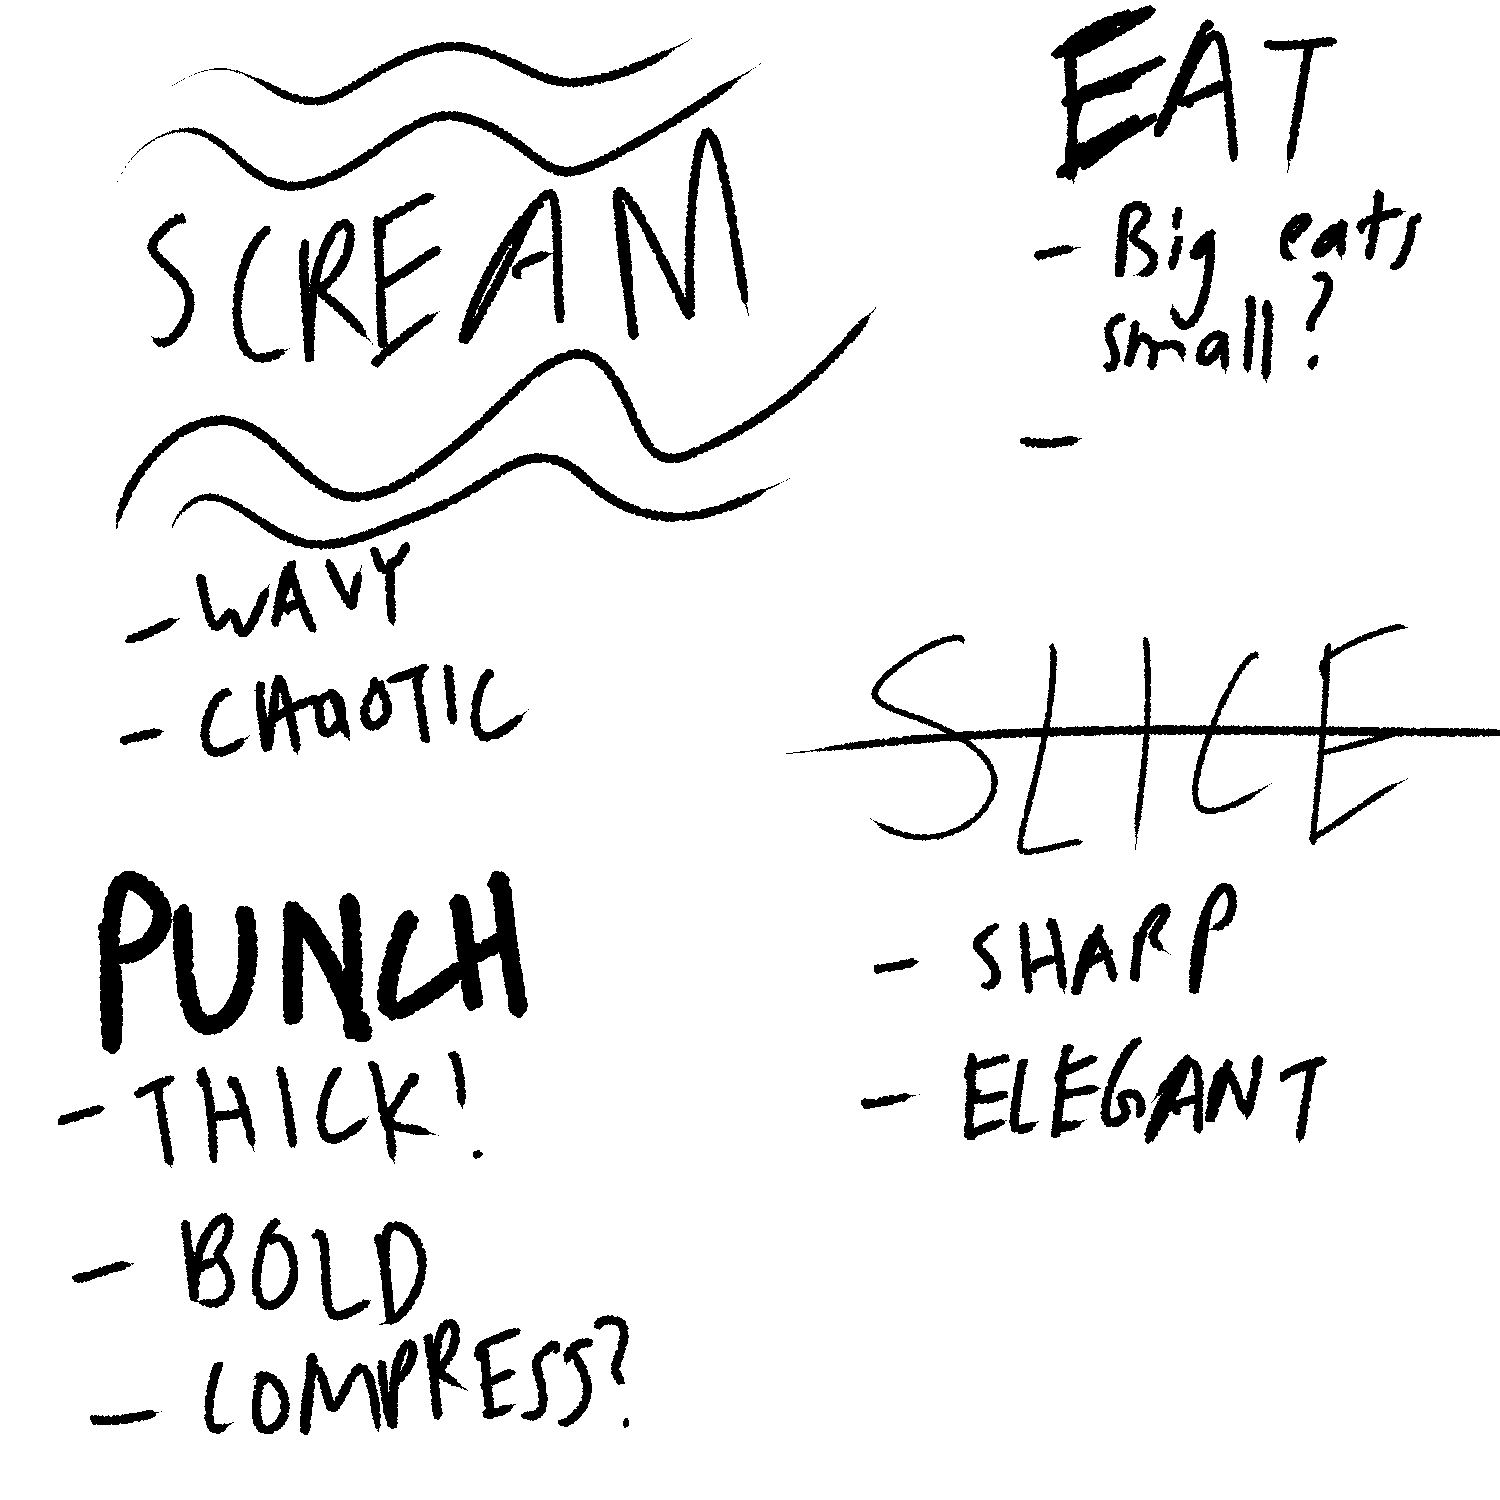 SCREAM
- WAVY
- CHAOTIC
EAT
- Big eats
small?
-
SLICE
- SHARP
- ELEGANT
PUNCH
- THICK!
- BOLD
- COMPRESS?